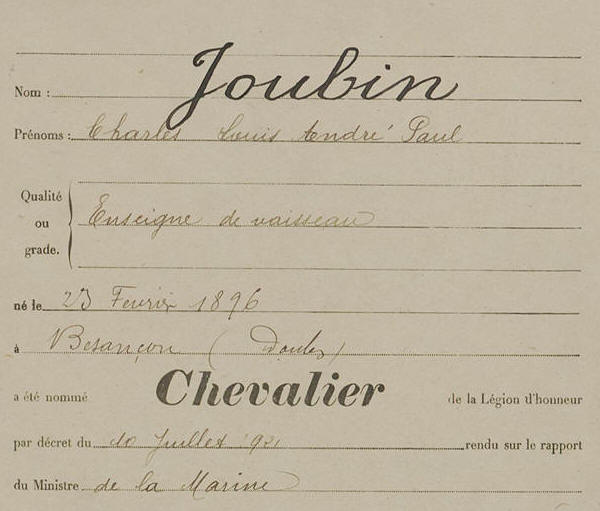 Nom : Joubin
Prénoms : Charles Louis André Paul
Qualité
ou
grade.
Enseigne de vaisseau
né le 23 Fevrier 1896
à Besançon (Doubs)
a été nommé Chevalier de la Légion d'honneur
par décret du 10 Juillet 1921 rendu sur le rapport
du Ministre de la Marine